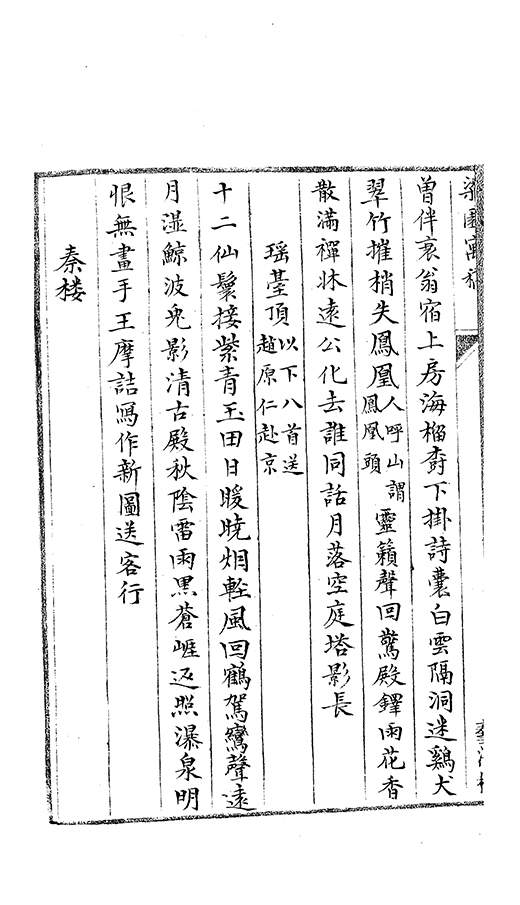 梁園寓稿
曽伴衰翁宿上房海榴𣗳下掛詩囊白雲隔洞迷鷄犬
翠竹摧梢失鳳凰人呼山謂鳳凰頭靈籟聲回驚殿鐸雨花香
散滿禪牀遠公化去誰同話月落空庭塔影長
瑶䑓頂以下八首送趙原仁赴京
十二仙鬟接紫青玉田日暖曉烟輕風回鶴駕鸞聲遠
月湿鯨波兎影清古殿秋陰雷雨黒蒼崕返照瀑泉明
恨無畫手王摩詰寫作新圖送客行
秦楼